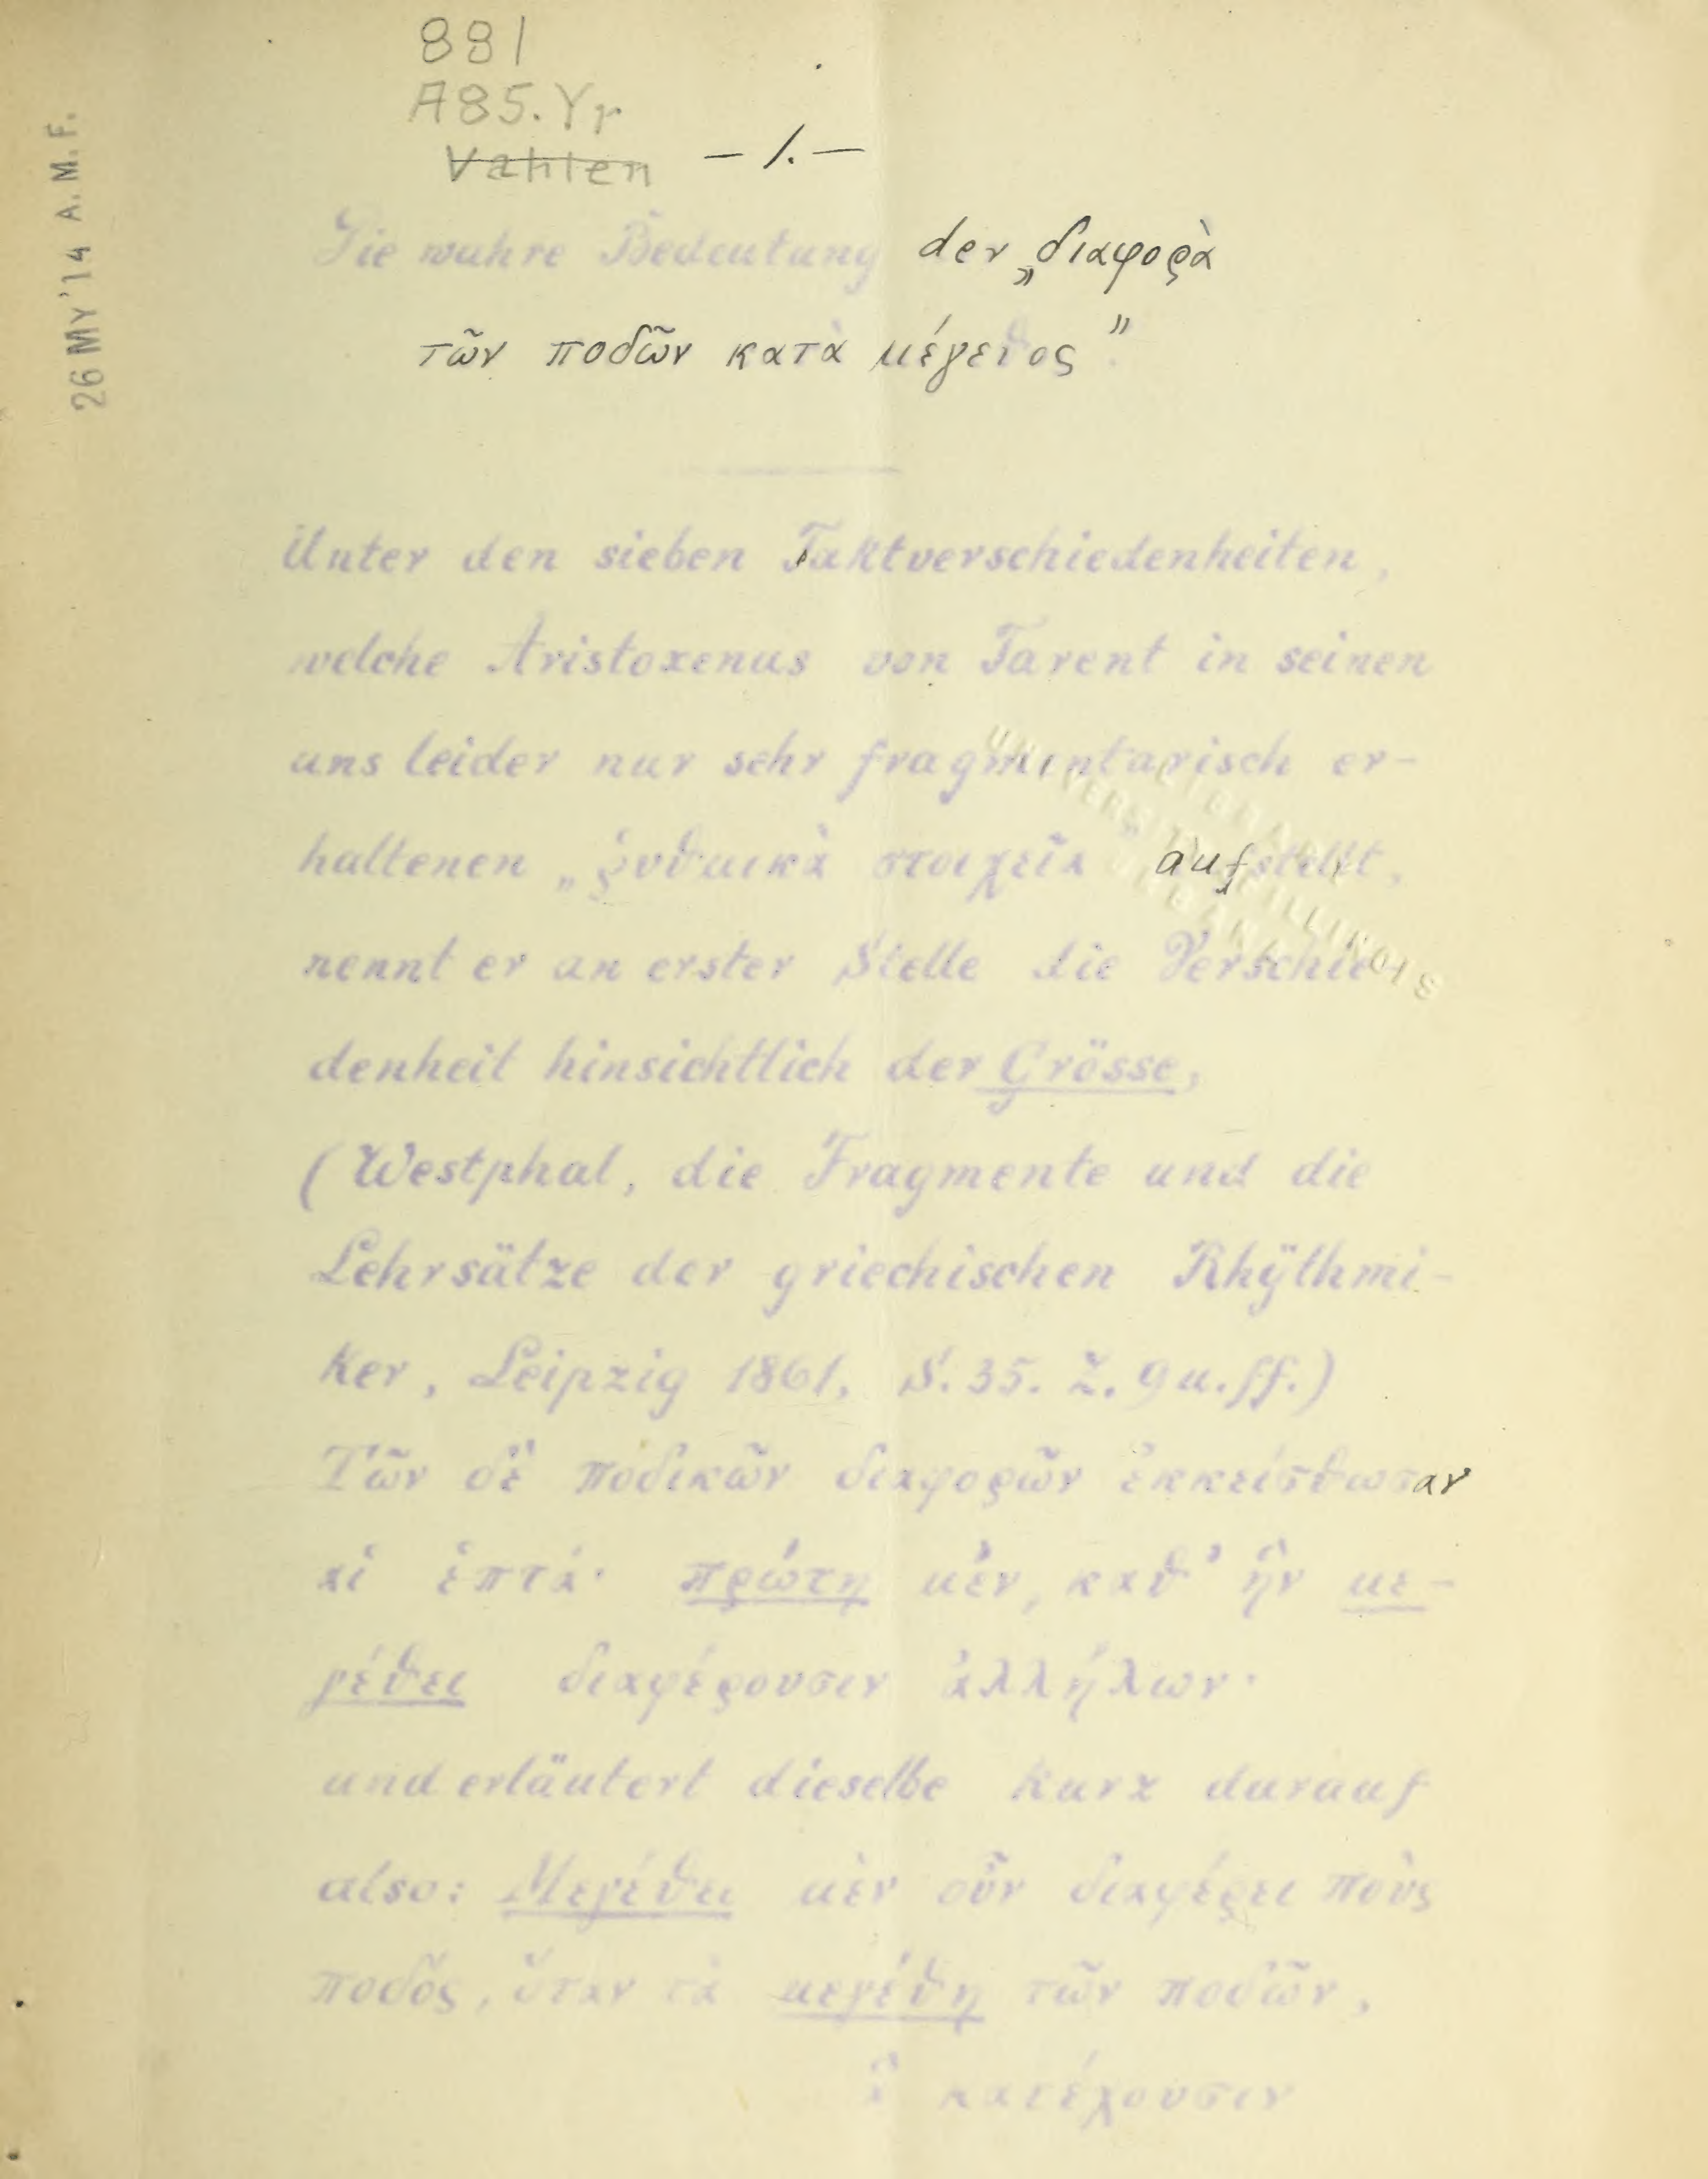 881
A85.Yr
Vahlen
— 1. —
26 MY '14 A. M. F.
Die wahre Bedeutung der „διαφορὰ
τῶν ποδῶν κατὰ μέγεθος"
Unter den sieben Taktverschiedenheiten,
welche Aristoxenus von Tarent in seinen
uns leider nur sehr fragmentarisch er-
haltenen „ῥυθμικὰ στοιχεῖα" aufstellt,
nennt er an erster Stelle die Verschie
denheit hinsichtlich der Grösse,
(Westphal, die Fragmente und die
Lehrsätze der griechischen Rhÿthmi-
ker, Leipzig 1861, S. 35. Z. 9 u. ff.)
Τῶν δὲ ποδικῶν διαφορῶν ἐκκείσθωσαν
αἱ ἑπτά· πρώτη μὲν, καθ' ἣν με-
γέθει διαφέρουσιν ἀλλήλων·
und erläutert dieselbe kurz darauf
also: Μεγέθει μὲν οὖν διαφέρει ποὺς
ποδός, ὅταν τὰ μεγέθη τῶν ποδῶν,
ἃ κατέχουσιν
UNIVERSITY OF ILLINOIS
LIBRARY
URBANA